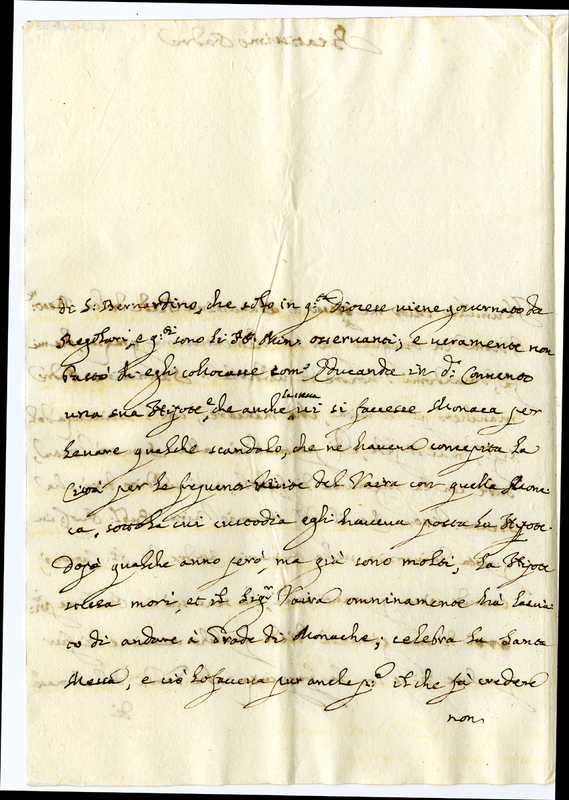 di S. Bernardino, che solo in q.ta Diocese viene governato da
Regolari, e q.ti sono li PP. Min. osservanti; e veramente non
passò di egli collocasse come Educanda in d.o Convento
una sua Nipote, che anche ivi si facesse Monaca per
levare qualche scandalo, che ne haveva concepita la
Città per le frequenti visite del Vaira con quella Mona
ca, sotto la cui custodia egli haveva posta la Nipote.
Dopò qualche anno però, ma già sono molti, la Nipote
stessa morì, et il Sig.r Vaira omninamente hà lascia
to di andare à Grade di Monache; celebra la Santa
Messa, e ciò lo faceva pur anche p.a il che fà credere
non